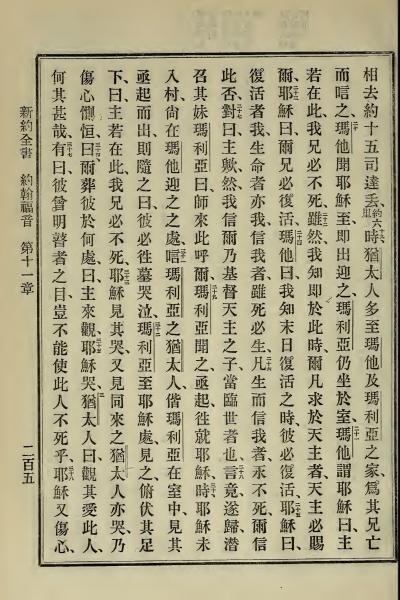 相去約十五司達丟、約六里時猶太人多至瑪他及瑪利亞之家、爲其兄亡
而唁之、瑪他聞耶穌至、卽出迎之、瑪利亞仍坐於室、瑪他謂耶穌曰、主
若在此、我兄必不死、雖然、我知卽於此時、爾凡求於天主者、天主必賜
爾、耶穌曰、爾兄必復活、瑪他曰、我知末日復活之時、彼必復活、耶穌曰、
復活者我、生命者亦我、信我者、雖死必生、凡生而信我者、永不死、爾信
此否、對曰、主歟、然、我信爾乃基督、天主之子、當臨世者也、言竟、遂歸、潛
召其妹瑪利亞曰、師來此呼爾、瑪利亞聞之、亟起往就耶穌、時耶穌未
入村、尙在瑪他迎之之處、唁瑪利亞之猶太人、偕瑪利亞在室中、見其
亟起而出、則隨之、曰、彼必往墓哭泣、瑪利亞至耶穌處、見之、俯伏其足
下、曰、主若在此、我兄必不死、耶穌見其哭、又見同來之猶太人亦哭、乃
傷心慟怛、曰、爾葬彼於何處、曰、主來觀、耶穌哭、猶太人曰、觀其愛此人、
何其甚哉、有曰、彼曾明瞽者之目、豈不能使此人不死乎、耶穌又傷心、
新約全書 約翰福音 第十一章 二百五